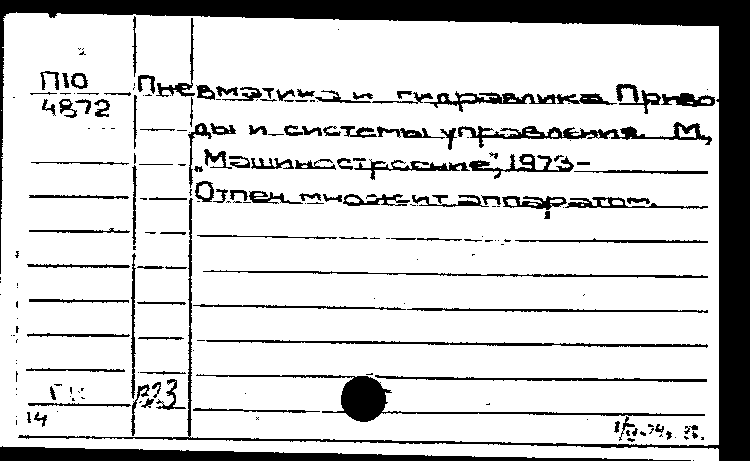 П10 Пневматика и гидравлика Приво-
4872 ды и системы управления. М.,
„Машиностроение", 1973-
Отпеч. множит аппаратом.
В23
14